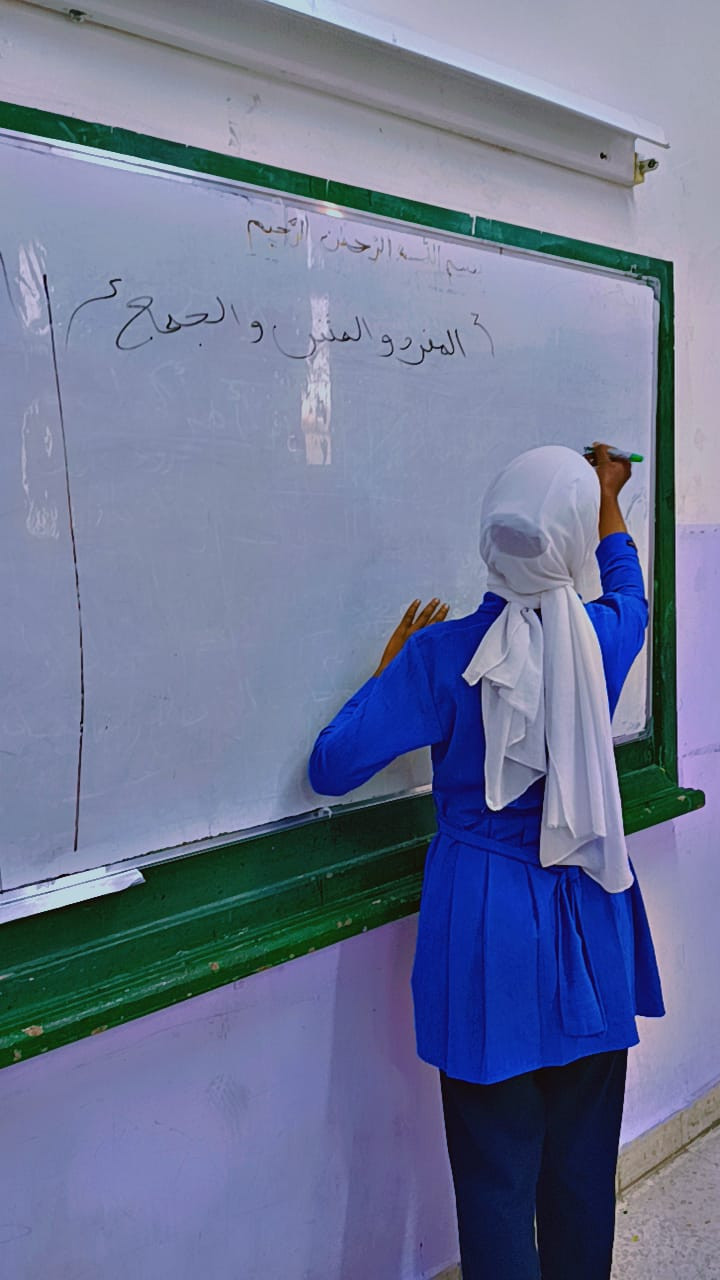 بسم الله الرحمن الرحيم
المفرد والمثنى والجمع